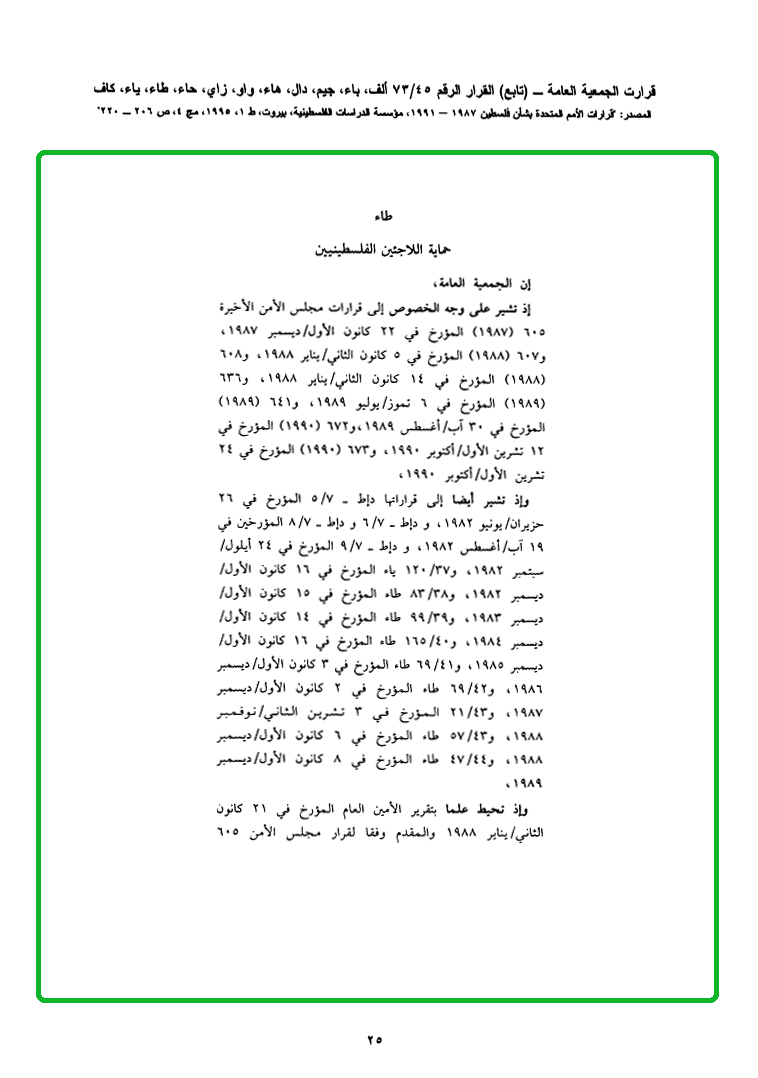 قرارت الجمعية العامة ــ (تابع) القرار الرقم ٧٣/٤٥ ألف، باء، جيم، دال، هاء، واو، زاي، حاء، طاء، ياء، كاف
المصدر: "قرارات الأمم المتحدة بشأن فلسطين ١٩٨٧ – ١٩٩١، مؤسسة الدراسات الفلسطينية، بيروت، ط ١، ١٩٩٥، مج ٤، ص ٢٠٦ ــ ٢٢٠"
طاء
حماية اللاجئين الفلسطينيين
إن الجمعية العامة،
إذ تشير على وجه الخصوص إلى قرارات مجلس الأمن الأخيرة
٦٠٥ (١٩٨٧) المؤرخ في ٢٢ كانون الأول/ديسمبر ١٩٨٧،
و٦٠٧ (١٩٨٨) المؤرخ في ٥ كانون الثاني/يناير ١٩٨٨، و٦٠٨
(١٩٨٨) المؤرخ في ١٤ كانون الثاني/يناير ١٩٨٨، و٦٣٦
(١٩٨٩) المؤرخ في ٦ تموز/يوليو ١٩٨٩، و٦٤١ (١٩٨٩)
المؤرخ في ٣٠ آب/أغسطس ١٩٨٩،و٦٧٢ (١٩٩٠) المؤرخ في
١٢ تشرين الأول/أكتوبر ١٩٩٠، و٦٧٣ (١٩٩٠) المؤرخ في ٢٤
تشرين الأول/أكتوبر ١٩٩٠،
وإذ تشير أيضا إلى قراراتها دإط ـ ٥/٧ المؤرخ في ٢٦
حزيران/يونيو ١٩٨٢، و دإط ـ ٦/٧ و دإط ـ ٨/٧ المؤرخين في
١٩ آب/أغسطس ١٩٨٢، و دإط ـ ٩/٧ المؤرخ في ٢٤ أيلول/
سبتمبر ١٩٨٢، و١٢٠/٣٧ ياء المؤرخ في ١٦ كانون الأول/
ديسمبر ١٩٨٢، و٨٣/٣٨ طاء المؤرخ في ١٥ كانون الأول/
ديسمبر ١٩٨٣، و٩٩/٣٩ طاء المؤرخ في ١٤ كانون الأول/
ديسمبر ١٩٨٤، و١٦٥/٤٠ طاء المؤرخ في ١٦ كانون الأول/
ديسمبر ١٩٨٥، و٦٩/٤١ طاء المؤرخ في ٣ كانون الأول/ديسمبر
١٩٨٦، و٦٩/٤٢ طاء المؤرخ في ٢ كانون الأول/ديسمبر
١٩٨٧، و٢١/٤٣ المؤرخ في ٣ تشرين الثاني/نوفمبر
١٩٨٨، و٥٧/٤٣ طاء المؤرخ في ٦ كانون الأول/ديسمبر
١٩٨٨، و٤٧/٤٤ طاء المؤرخ في ٨ كانون الأول/ديسمبر
١٩٨٩،
وإذ تحيط علما بتقرير الأمين العام المؤرخ في ٢١ كانون
الثاني/يناير ١٩٨٨ والمقدم وفقا لقرار مجلس الأمن ٦٠٥
٢٥